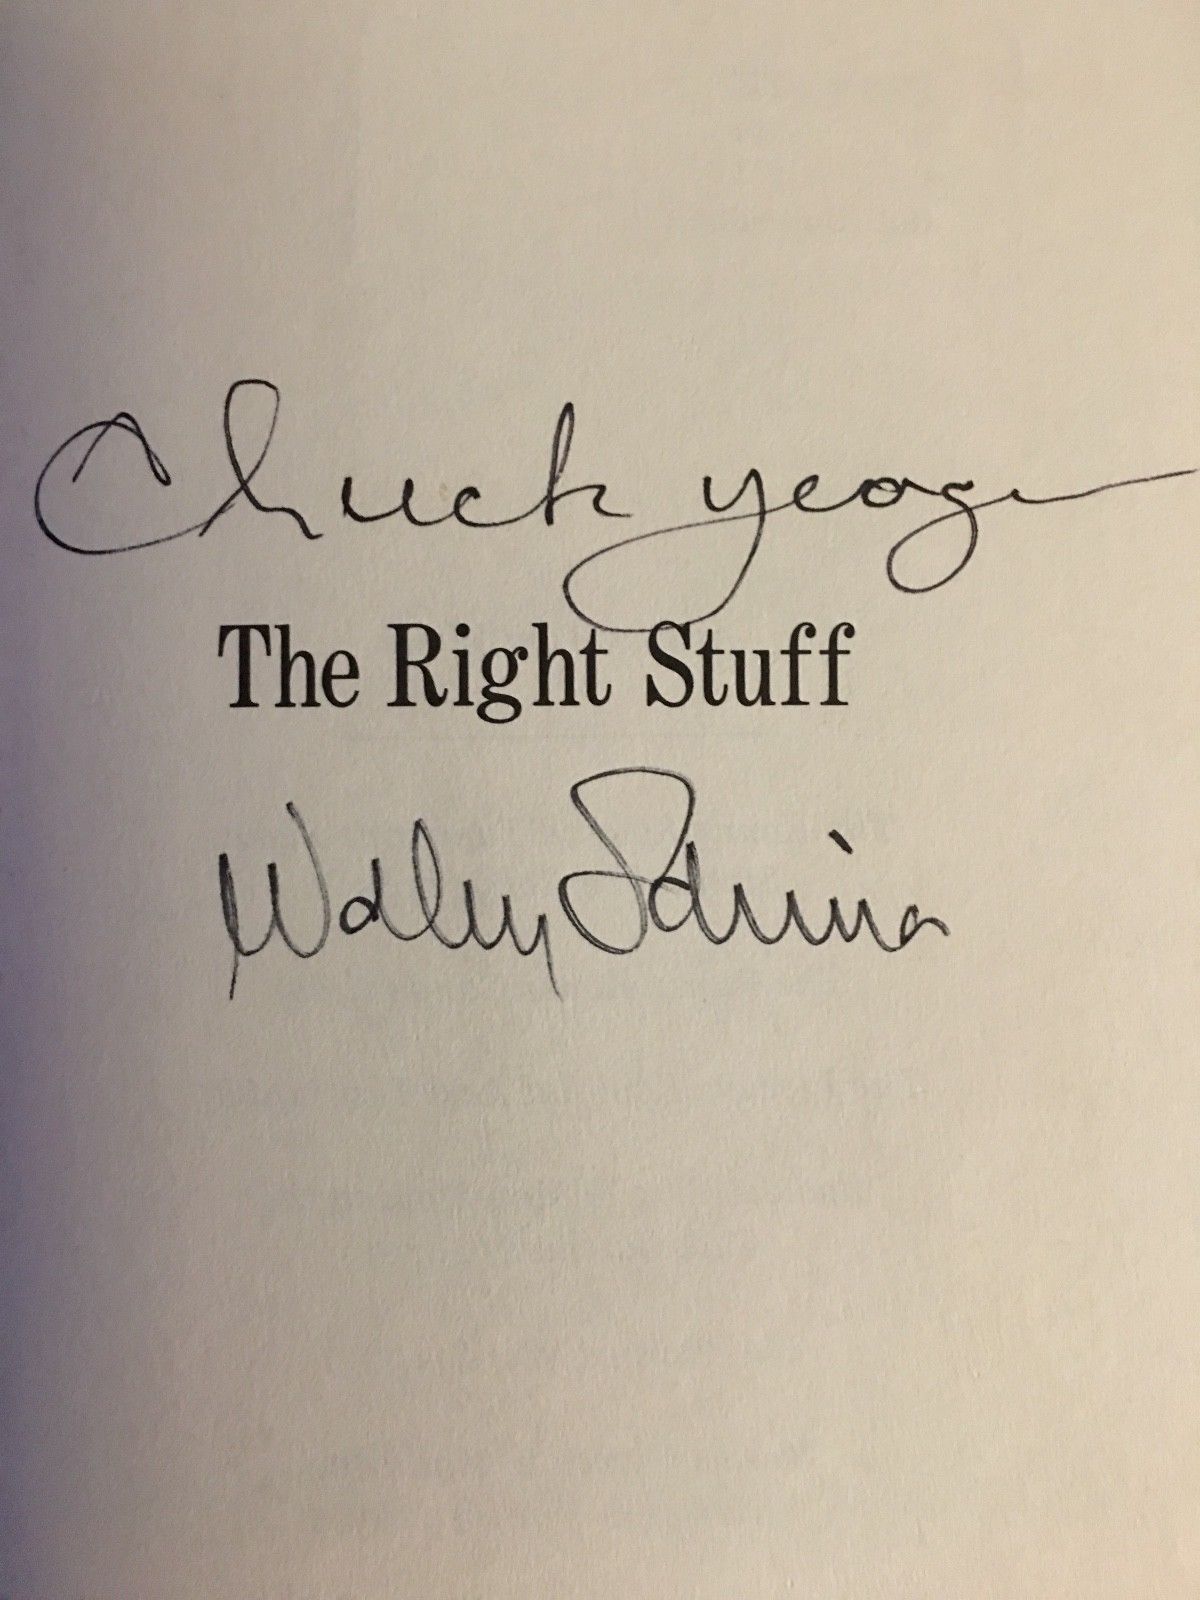 Chuck Yeager
The Right Stuff
Wally Schirra